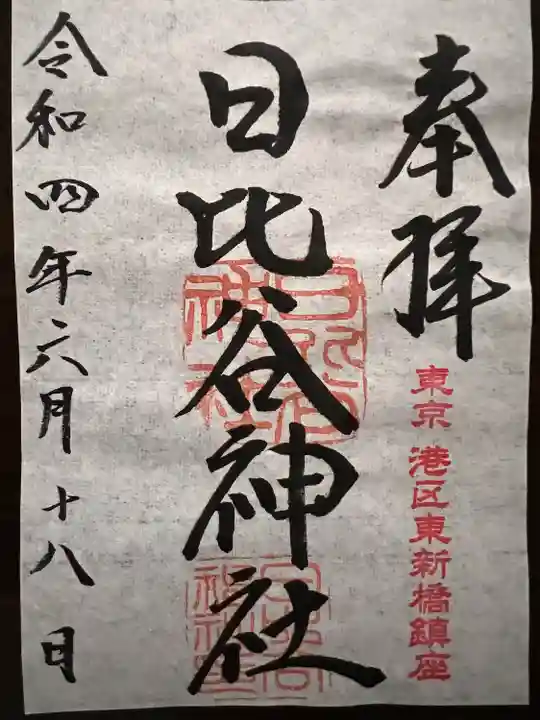 奉拝
東京 港区東新橋鎮座
日比谷神社
日比谷神社
令和四年六月十八日